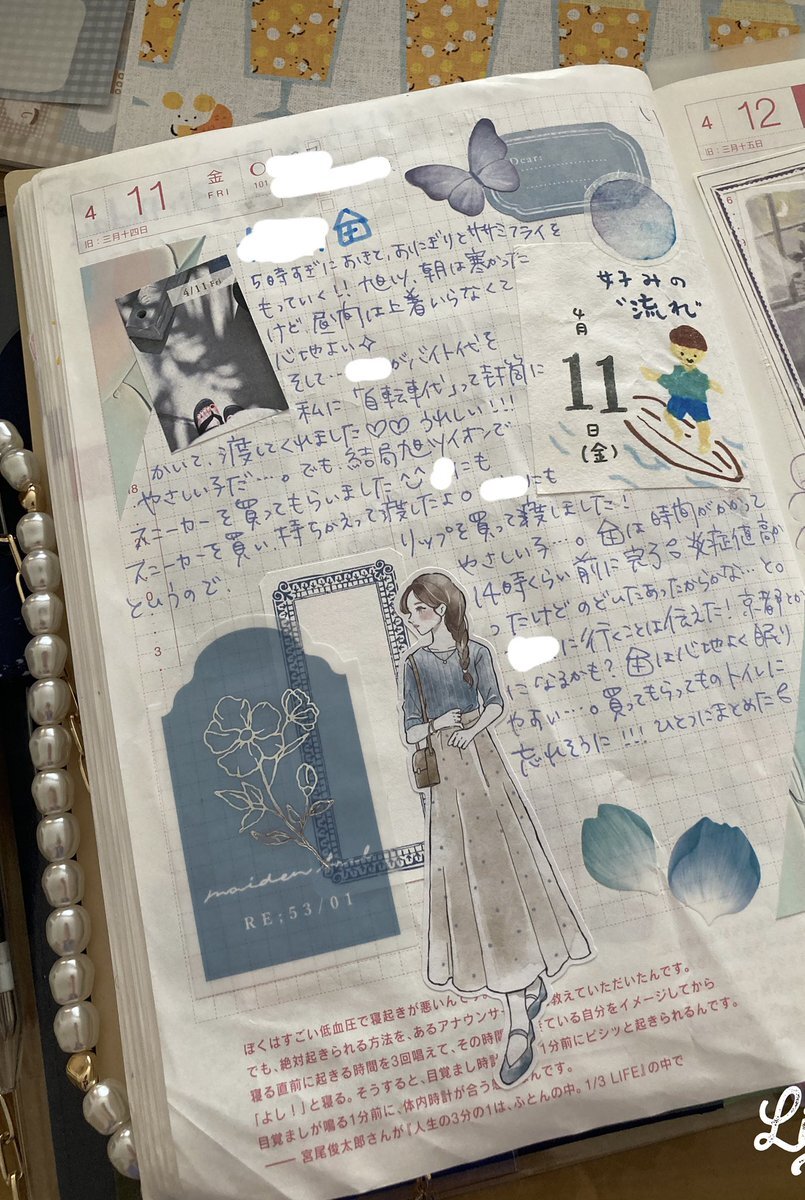 4 11 金 FRI
101
旧:三月十四日
4 12
旧:三月十五日
Dear:
4/11 Fri
5時すぎにおきて、おにぎりとササミフライを
もっていく!! 旭川、朝は寒かった
けど、昼間は上着いらなくて
心地よい
そして…
がバイト代を
私に「自転車代」って封筒に
かいて、渡してくれました♡♡ うれしい!!!
やさしい子だ…。でも、結局旭川イオンで
スニーカーを買ってもらいました
にも
スニーカーを買い、持ちかえって渡したよ。
にも
というので、
リップを買って渡しました!
やさしい子…。
は時間がかかって
14時くらい前に完了
炎症値高か
ったけど のどいたあったからかな…と。
に行くことは伝えた! 京都とか
になるかも?
は心地よく眠り
やすい…。買ってもらってものトイレに
忘れそうに!!! ひとつにまとめた
好みの
"流れ"
4月
11
日
(金)
6
8
3
maiden
RE;53/01
ぼくはすごい低血圧で寝起きが悪いんで
教えていただいたんです。
でも、絶対起きられる方法を、あるアナウンサ
きている自分をイメージしてから
寝る直前に起きる時間を3回唱えて、その時間
1分前にビシッと起きられるんです。
「よし!」と寝る。そうすると、目覚まし時計
目覚ましが鳴る1分前に、体内時計が合う
んです。
── 宮尾俊太郎さんが『人生の3分の1は、ふとんの中。1/3 LIFE』の中で